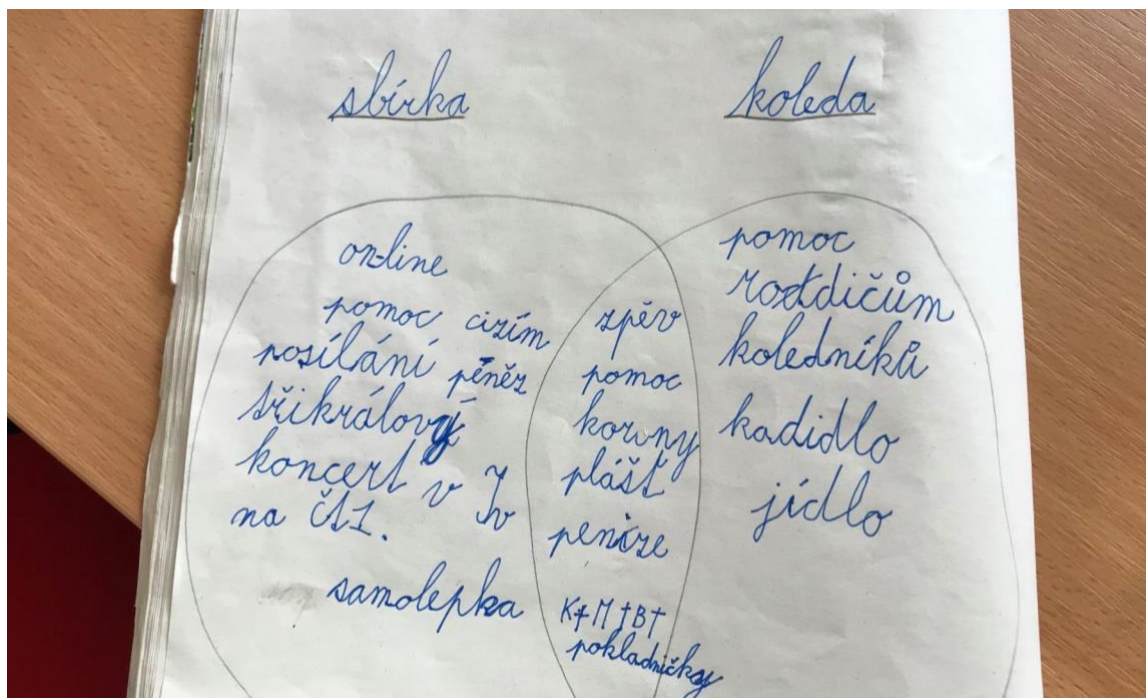 sbírka
koleda
online
pomoc cizím
posílání peněz
tříkrálový
koncert v
na ČT1.
samolepka
zpěv
pomoc
koruny
plášť
peníze
K+M+B+
pokladničky
pomoc
rodičům
koledníků
kadidlo
jídlo